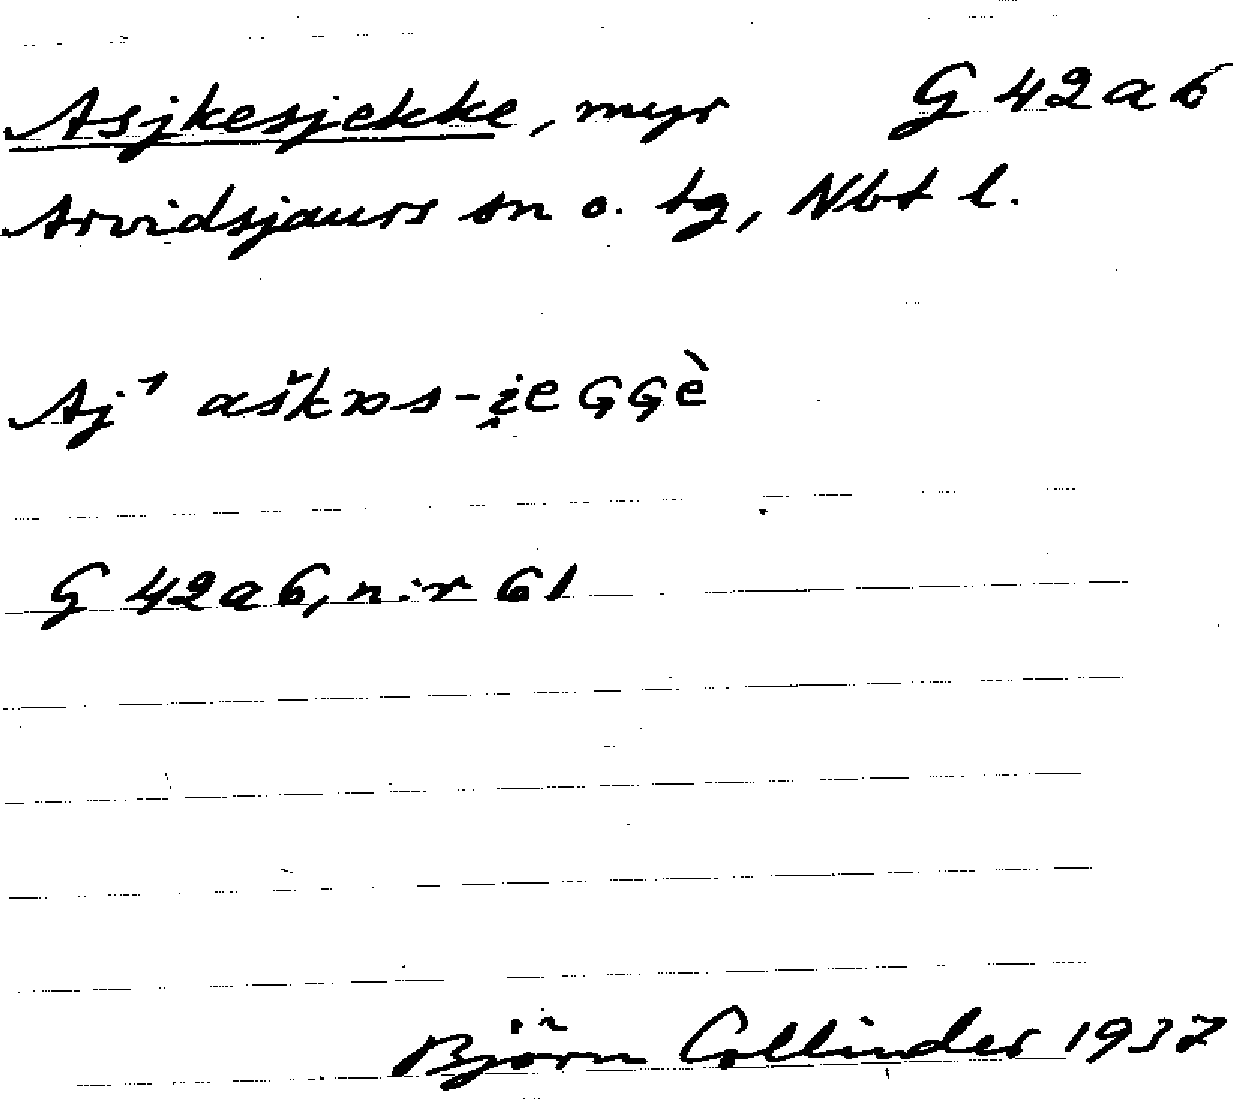 Asjkesjekke, myr G 42 a 6
Arvidsjaurs sn o. tg, Nbt l.
Aj¹ aškɒs-i̯eGGè
G 42 a 6, n:r 61
Björn Collinder 1937